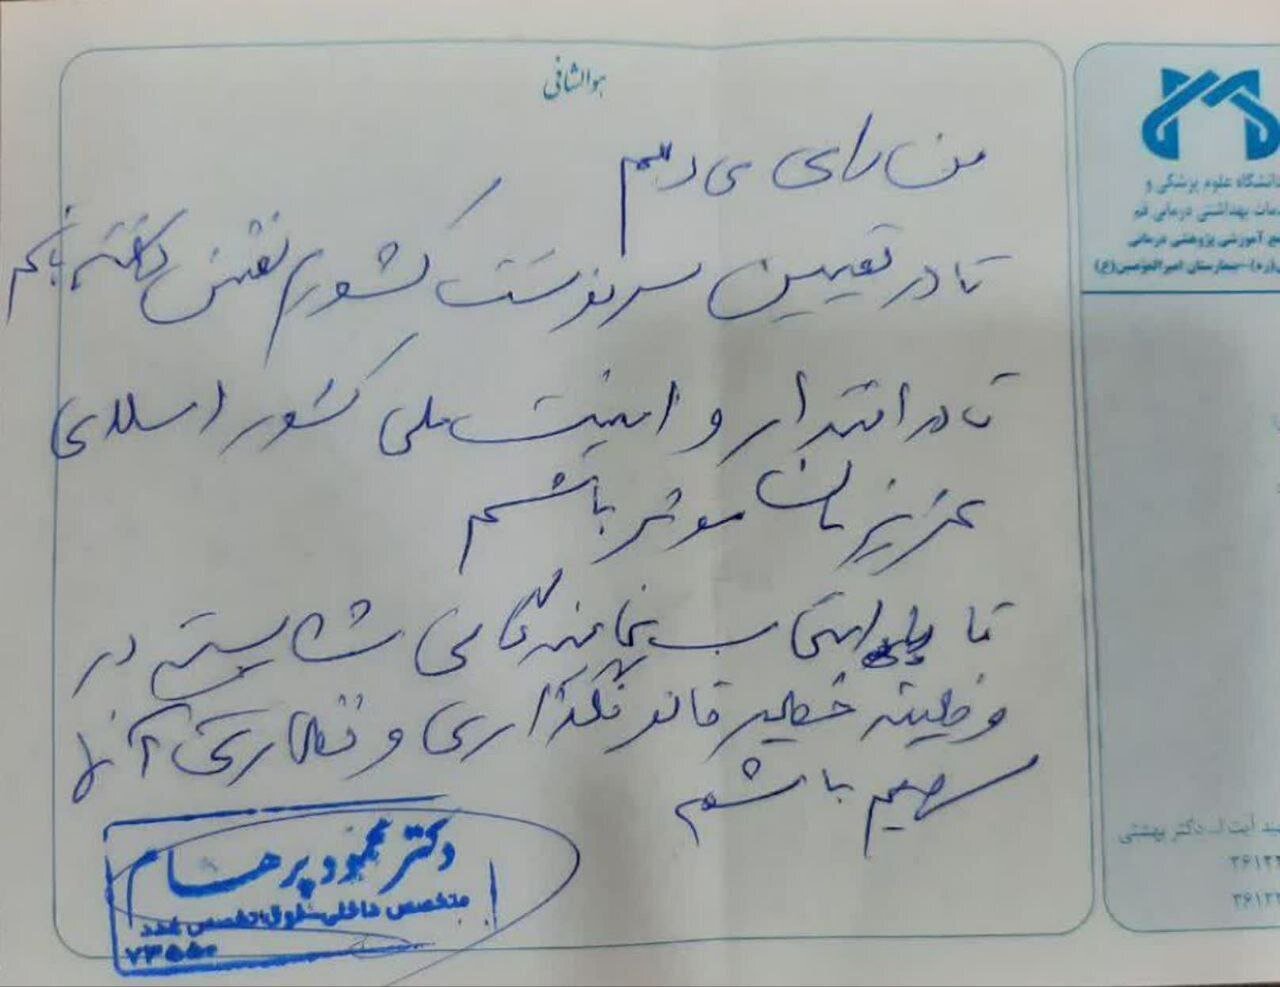 هوالشافی
من رای می دهم
تا در تعیین سرنوشت کشورم نقش داشته باشم
تا در اقتدار و امنیت ملی کشور اسلامی
عزیزمان موثر باشم
تا با انتخاب نمایندگانی شایسته در
وظیفه خطیر قانونگذاری و نظارتی آنها
سهیم باشم
دکتر محمود پرهام
متخصص داخلی-فوق تخصص غدد
۷۳۵۵۰
دانشگاه علوم پزشکی و
خدمات بهداشتی درمانی قم
آموزشی پژوهشی درمانی
(ره)-بیمارستان امیرالمومنین(ع)
آیت ا... دکتر بهشتی
۳۶۱۲۲
۳۶۱۲۲